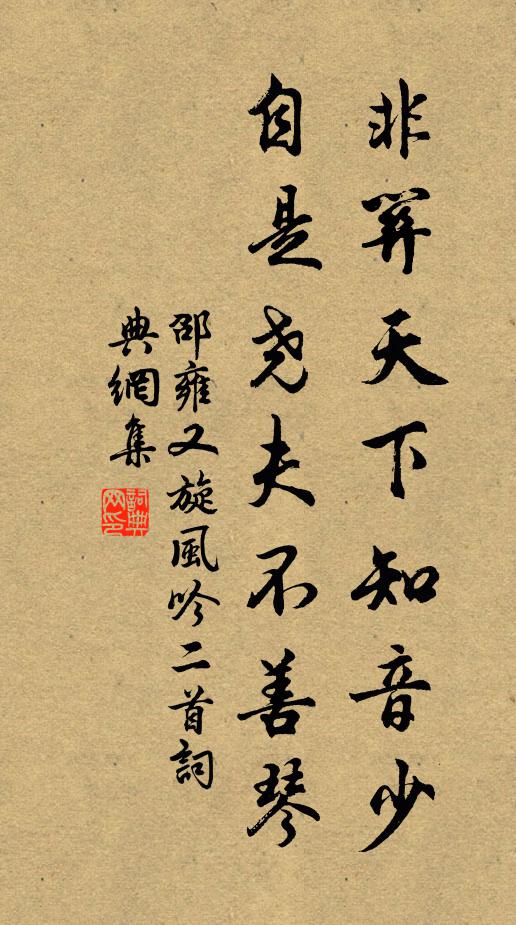 非關天下知音少
自是尧夫不善琴
邵雍又旋風吟二首詞
典網集
詞典
网印